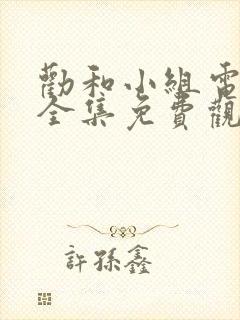 勸和小組電
全集免費觀
許孫鑫